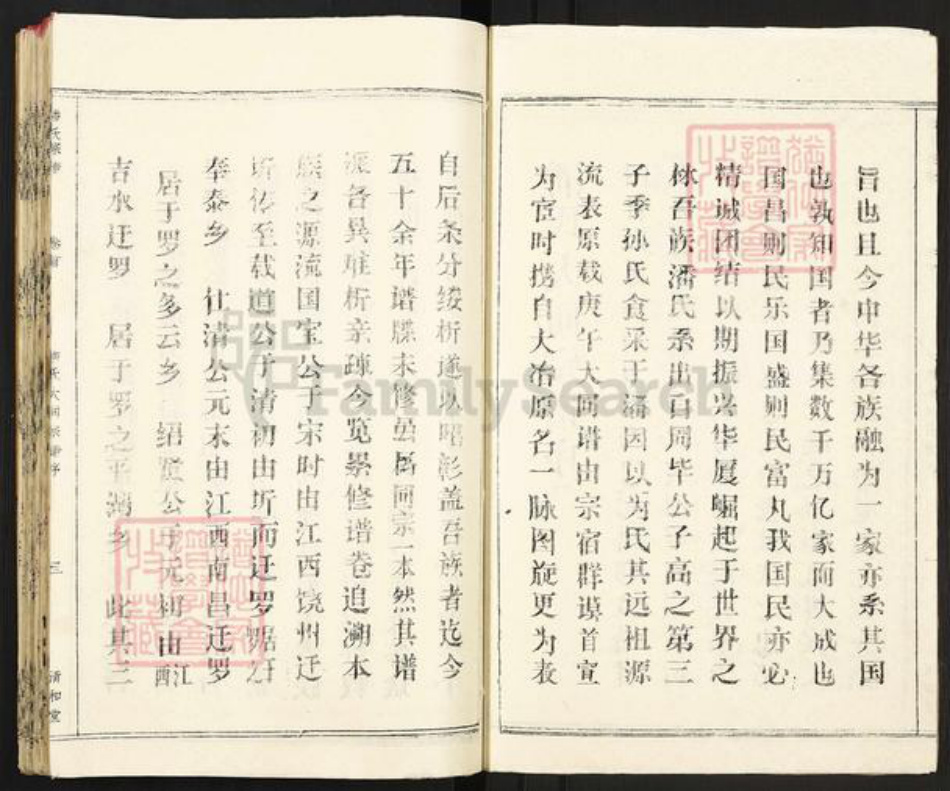 旨也且今中华各族融为一家亦系其国
也孰知国者乃集数千万亿家而大成也
国昌则民乐国盛则民富丸我国民亦必
精诚团结以期振兴华厦崛起于世界之
林吾族潘氏系出自周毕公子高之第三
子季孙氏食采于潘因以为氏其远祖源
流表原载庚午大同谱由宗宿群谟首宣
为宦时携自大冶原名一脉图旋更为表
自后条分缕析遂以昭彰盖吾族者迄今
五十余年谱牒未修虽属同宗一本然其谱
派各异难析亲疎今览景修谱卷追溯本
族之源流国宝公于宋时由江西饶州迁
圻传至载道公于清初由圻而迁罗
奉泰乡 仕清公元末由江西南昌迁罗
居于罗之多云乡 绍贤公于元初由江西
吉水迁罗 居于罗之平湖乡 此其三
三
清和堂
FamilySearch